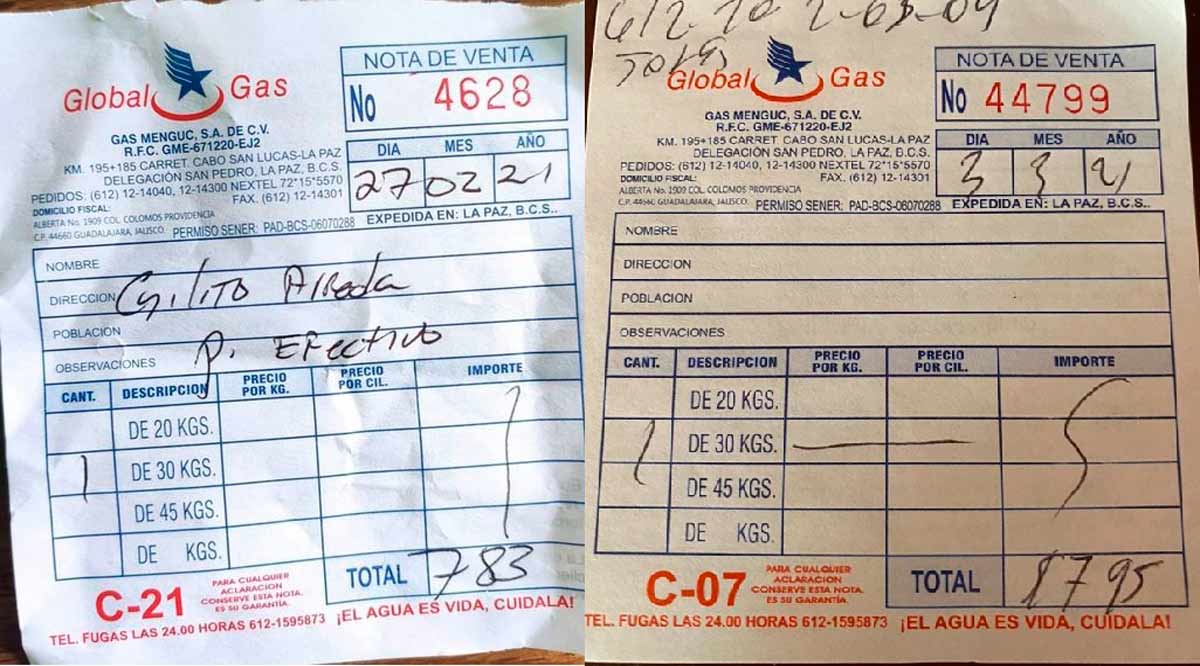 Global Gas
NOTA DE VENTA
No 4628
GAS MENGUC, S.A. DE C.V.
R.F.C. GME-671220-EJ2
KM. 195+185 CARRET. CABO SAN LUCAS-LA PAZ
DELEGACIÓN SAN PEDRO, LA PAZ, B.C.S.
PEDIDOS: (612) 12-14040, 12-14300 NEXTEL 72*15*5570
FAX. (612) 12-14301
DOMICILIO FISCAL:
ALBERTA No. 1909 COL. COLOMOS PROVIDENCIA
C.P. 44660 GUADALAJARA, JALISCO. PERMISO SENER: PAD-BCS-06070288 EXPEDIDA EN: LA PAZ, B.C.S..
DIA MES AÑO
27 02 21
NOMBRE
DIRECCION
POBLACIÓN
OBSERVACIONES P. Efectivo
CANT. DESCRIPCION PRECIO POR KG. PRECIO POR CIL. IMPORTE
DE 20 KGS.
1 DE 30 KGS.
DE 45 KGS.
DE KGS.
TOTAL 783
C-21
PARA CUALQUIER
ACLARACION
CONSERVE ESTA NOTA.
ES SU GARANTÍA.
TEL. FUGAS LAS 24.00 HORAS 612-1595873 ¡EL AGUA ES VIDA, CUIDALA!
Global Gas
NOTA DE VENTA
No 44799
GAS MENGUC, S.A. DE C.V.
R.F.C. GME-671220-EJ2
KM. 195+185 CARRET. CABO SAN LUCAS-LA PAZ
DELEGACIÓN SAN PEDRO, LA PAZ, B.C.S.
PEDIDOS: (612) 12-14040, 12-14300 NEXTEL 72*15*5570
FAX. (612) 12-14301
DOMICILIO FISCAL:
ALBERTA No. 1909 COL. COLOMOS PROVIDENCIA
C.P. 44660 GUADALAJARA, JALISCO. PERMISO SENER: PAD-BCS-06070288 EXPEDIDA EN: LA PAZ, B.C.S..
DIA MES AÑO
3 3 21
NOMBRE
DIRECCION
POBLACIÓN
OBSERVACIONES
CANT. DESCRIPCION PRECIO POR KG. PRECIO POR CIL. IMPORTE
DE 20 KGS.
1 DE 30 KGS.
DE 45 KGS.
DE KGS.
TOTAL $795
C-07
PARA CUALQUIER
ACLARACION
CONSERVE ESTA NOTA.
ES SU GARANTÍA.
TEL. FUGAS LAS 24.00 HORAS 612-1595873 ¡EL AGUA ES VIDA, CUIDALA!